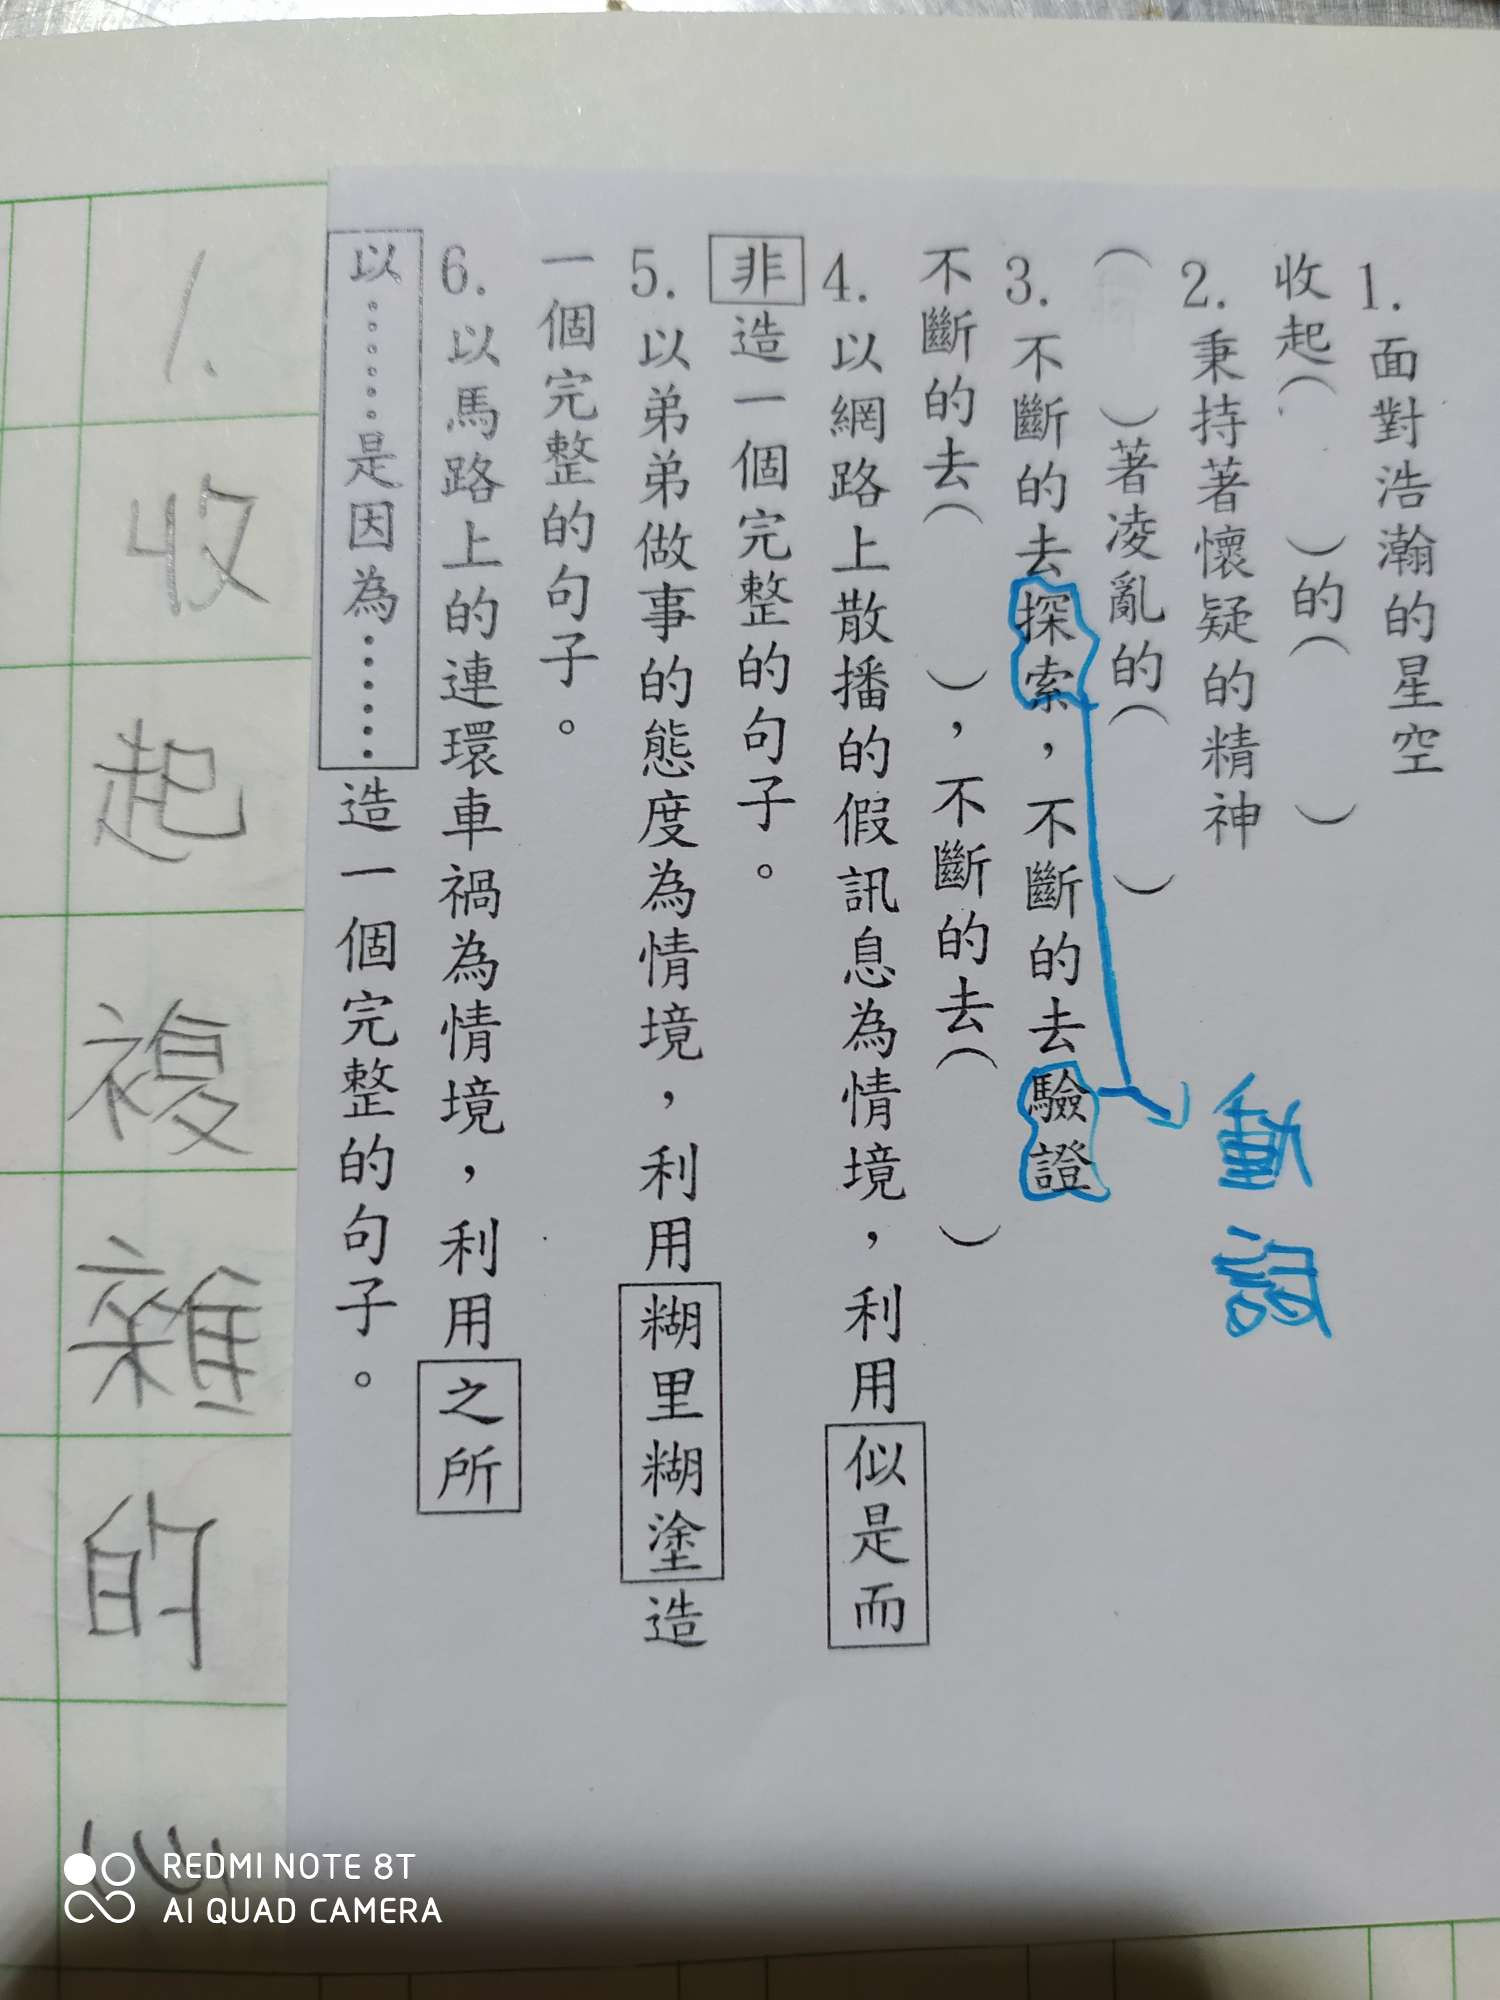 1.面對浩瀚的星空
收起(　　)的(　　)
2.秉持著懷疑的精神
(　　)著凌亂的(　　)
3.不斷的去探索，不斷的去驗證
不斷的去(　　)，不斷的去(　　)
4.以網路上散播的假訊息為情境，利用似是而
非造一個完整的句子。
5.以弟弟做事的態度為情境，利用糊里糊塗造
一個完整的句子。
6.以馬路上的連環車禍為情境，利用之所
以……是因為……造一個完整的句子。
動詞
1.收起複雜的心
REDMI NOTE 8T
AI QUAD CAMERA